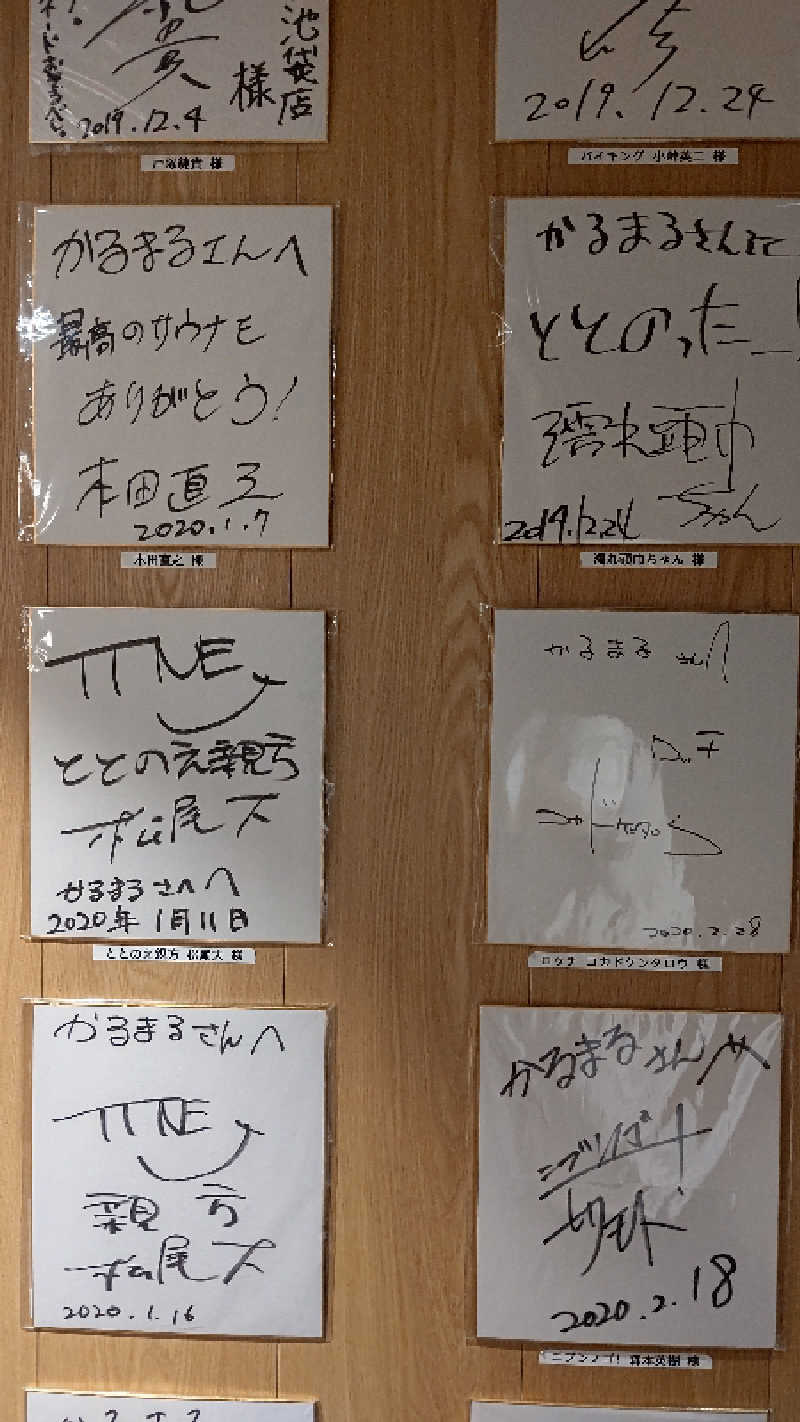 池袋店
様
2019.12.4
戸沼純貴 様
2019.12.24
バイキング 小峠英二 様
かるまるさんへ
最高のサウナを
ありがとう!
本田直之
2020.1.7
本田直之 様
かるまるさんにて
ととのったー!
濡れ頭巾
ちゃん
2019.12.24
濡れ頭巾ちゃん 様
TTNE
ととのえ親方
松尾大
かるまるさんへ
2020年1月11日
ととのえ親方 松尾大 様
かるまるさんへ
ロッチ
コカドケンタロウ
2020.2.28
ロッチ コカドケンタロウ 様
かるまるさんへ
TTNE
親方
松尾大
2020.1.16
かるまるさんへ
ニブンノゴ!
2020.2.18
ニブンノゴ! 森本英樹 様